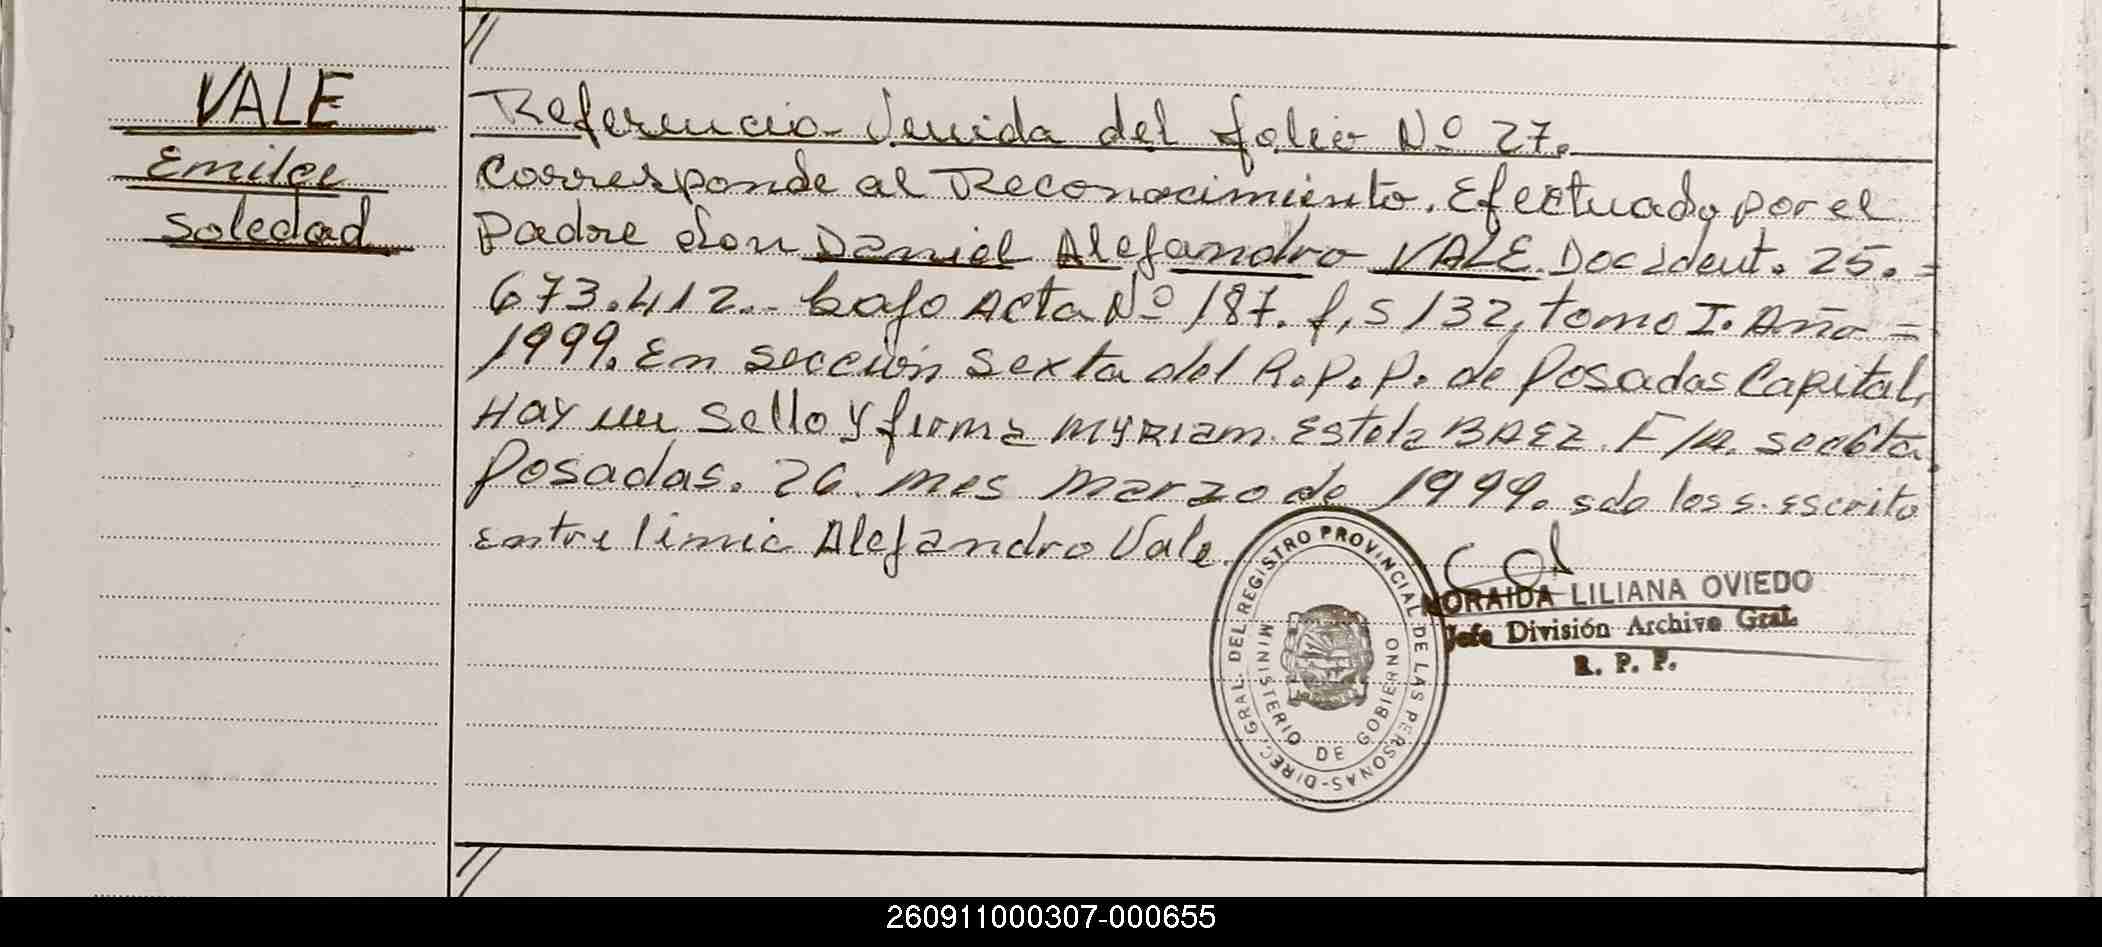 VALE
Emilce
Soledad
Referencia Venida del folio Nº 27.
Corresponde al Reconocimiento. Efectuado por el
Padre don Daniel Alejandro VALE. Doc ident. 25.=
673.412.- bajo Acta Nº 187. f,s 132, tomo I. Año =
1999. En sección sexta del R.P.P. de Posadas Capital,
Hay un Sello y firma Myriam Estela BAEZ. F/R. secc 6ta.
Posadas. 26 mes marzo de 1999. sdo escrito
entre limic Alejandro Vale.
NORAIDA LILIANA OVIEDO
Jefe División Archivo Gral.
R. P. P.
DIREC. GRAL. DEL REGISTRO PROVINCIAL DE LAS PERSONAS-
MINISTERIO DE GOBIERNO
260911000307-000655